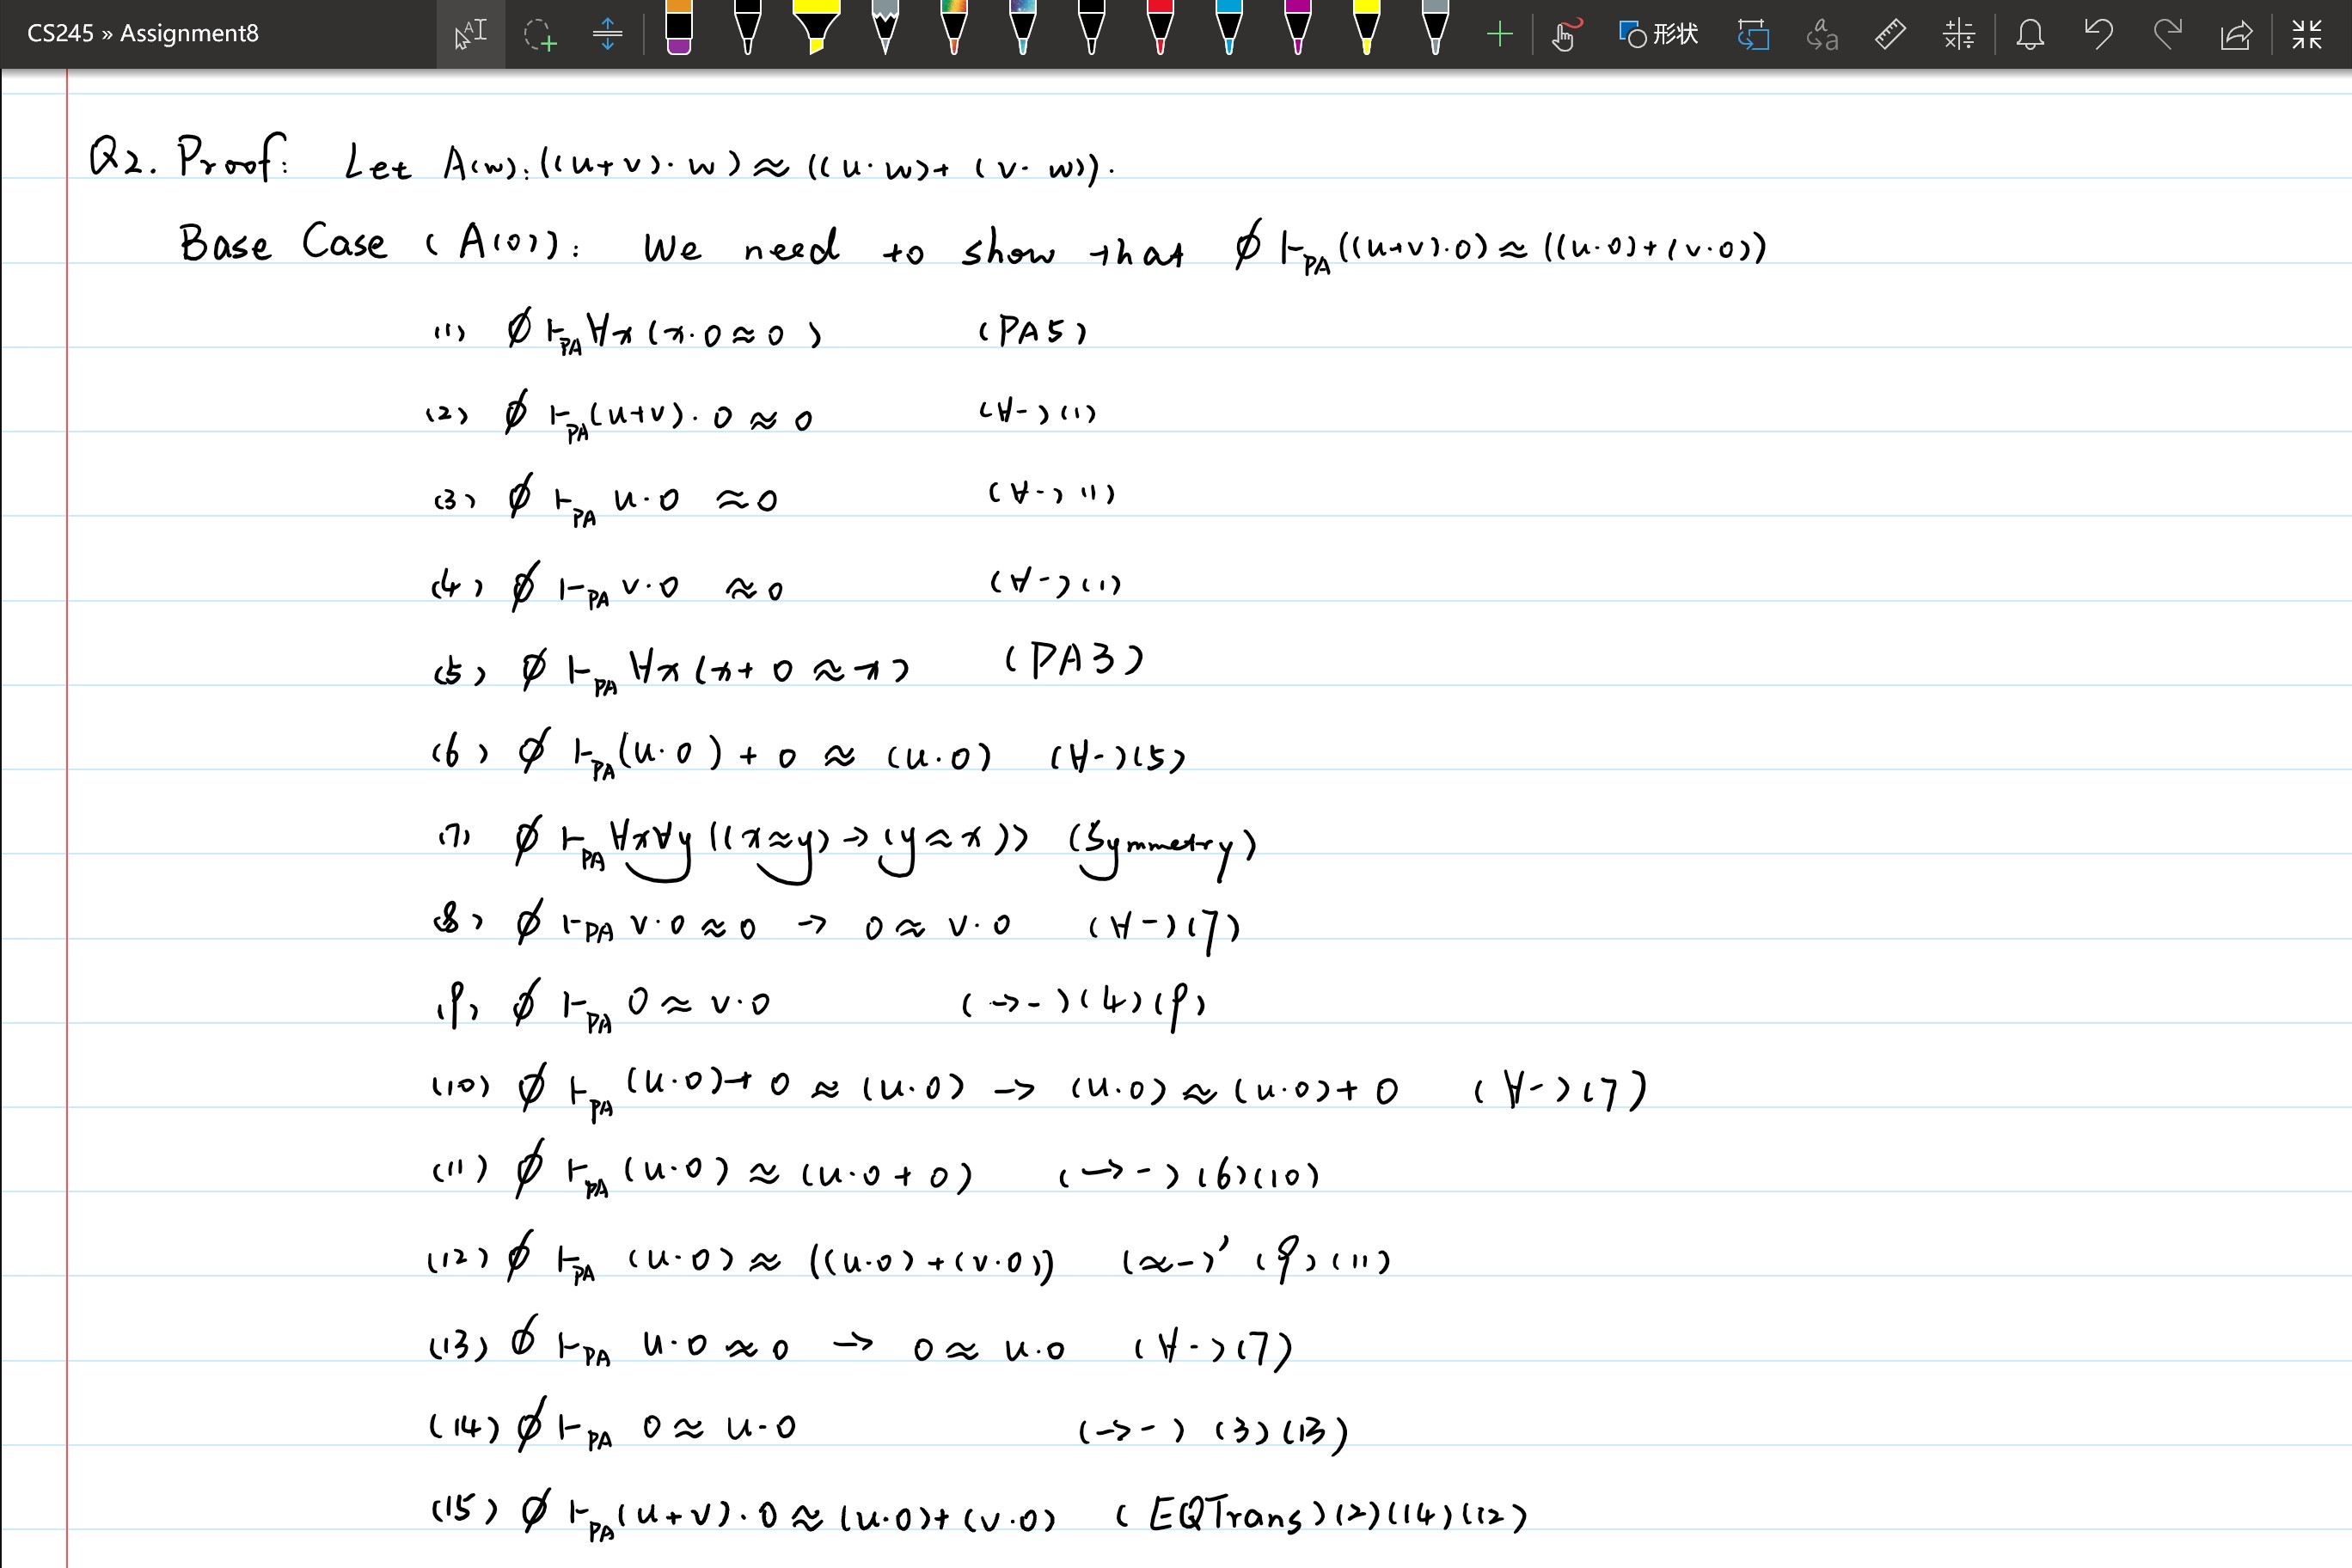 CS245 » Assignment8
形状
Q2. Proof: Let A(w): ((u+v)·w) ≈ ((u·w)+(v·w)).
Base Case (A(0)): We need to show that ∅ ⊢PA ((u+v)·0) ≈ ((u·0)+(v·0))
(1) ∅ ⊢PA ∀x(x·0 ≈ 0) (PA5)
(2) ∅ ⊢PA (u+v)·0 ≈ 0 (∀-)(1)
(3) ∅ ⊢PA u·0 ≈ 0 (∀-)(1)
(4) ∅ ⊢PA v·0 ≈ 0 (∀-)(1)
(5) ∅ ⊢PA ∀x(x+0 ≈ x) (PA3)
(6) ∅ ⊢PA (u·0)+0 ≈ (u·0) (∀-)(5)
(7) ∅ ⊢PA ∀x∀y((x≈y)→(y≈x)) (Symmetry)
(8) ∅ ⊢PA v·0 ≈ 0 → 0 ≈ v·0 (∀-)(7)
(9) ∅ ⊢PA 0 ≈ v·0 (→-)(4)(9)
(10) ∅ ⊢PA (u·0)+0 ≈ (u·0) → (u·0) ≈ (u·0)+0 (∀-)(7)
(11) ∅ ⊢PA (u·0) ≈ (u·0+0) (→-)(6)(10)
(12) ∅ ⊢PA (u·0) ≈ ((u·0)+(v·0)) (≈-)' (9)(11)
(13) ∅ ⊢PA u·0 ≈ 0 → 0 ≈ u·0 (∀-)(7)
(14) ∅ ⊢PA 0 ≈ u·0 (→-)(3)(13)
(15) ∅ ⊢PA (u+v)·0 ≈ (u·0)+(v·0) (EQTrans)(2)(14)(12)